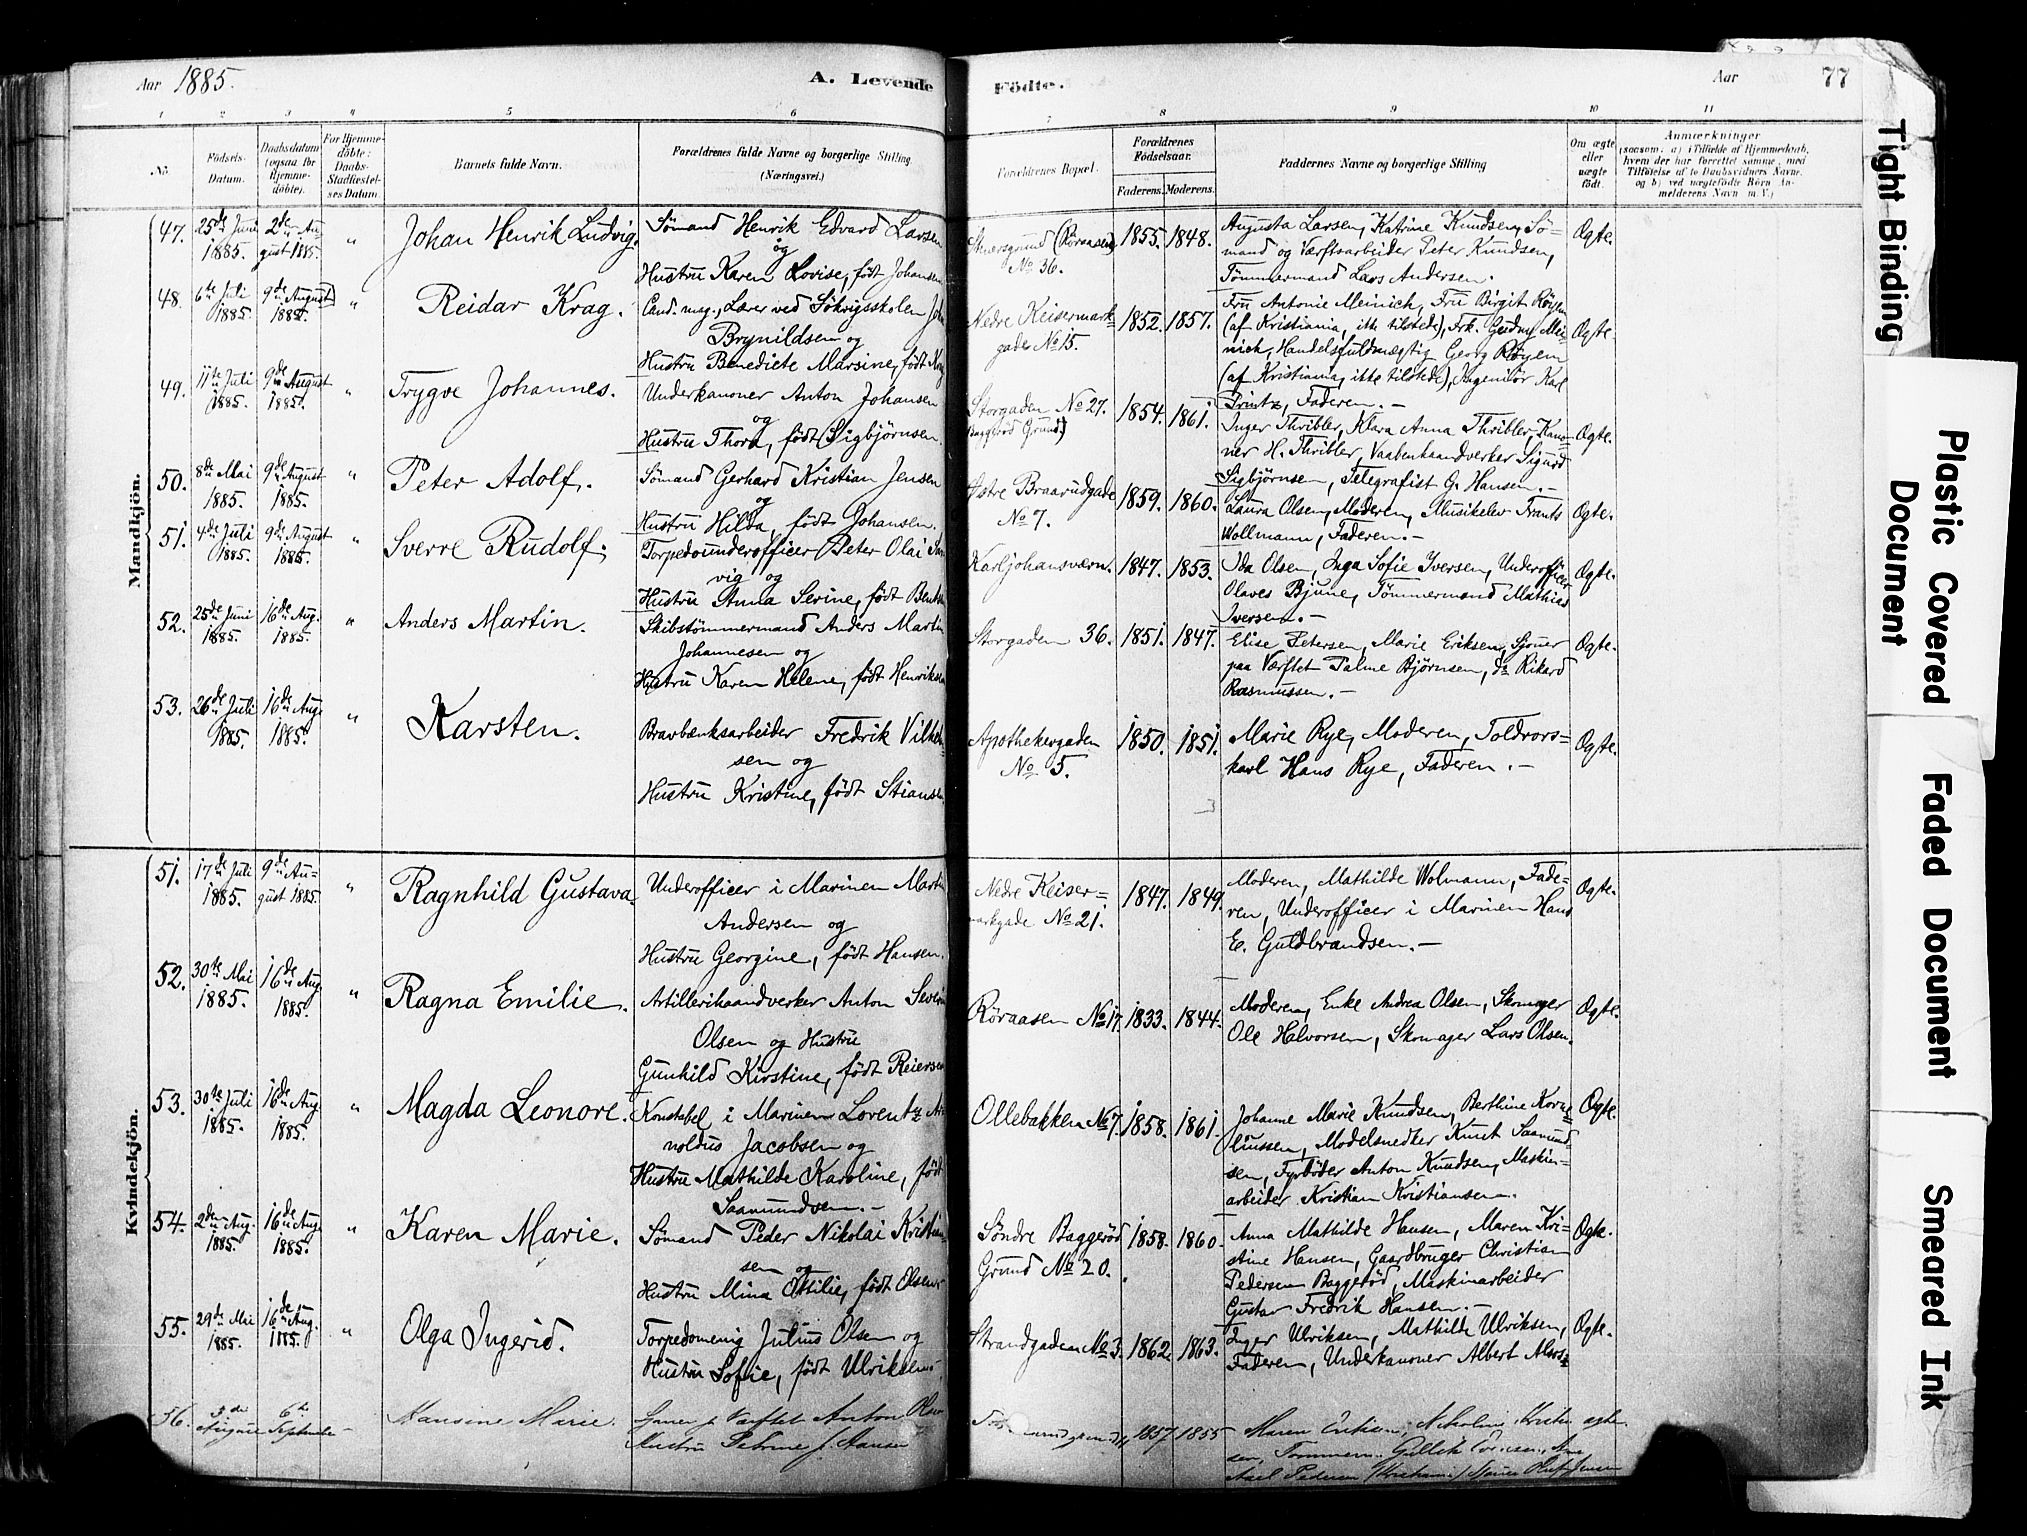 Aar 1885.
A. Levende
Födte.
Aar
77
1 2 3 4 5 6 7 8 9 10 11
No.
Födsels-
Datum.
Daabsdatum
(ogsaa for
Hjemme-
döbte).
For Hjemme-
döbte:
Daabs-
Stadfæstel-
ses Datum
Barnets fulde Navn.
Forældrenes fulde Navne og borgerlige Stilling
(Næringsvei.)
Forældrenes Bopæl.
Forældrenes
Födselsaar.
Faderens. Moderens.
Faddernes Navne og borgerlige Stilling
Om ægte
eller
uægte
födt.
Anmærkninger
(saasom: a) i Tilfælde af Hjemmedaab,
hvem der har forrettet samme, med
Tilföielse af to Daabsvidners Navne,
og b) ved uægtefödte Börn An-
melderens Navn m. V.)
Mandkjön.
47.
25de Juni
1885.
2den Au-
gust 1885.
"
Johan Henrik Ludvig.
Sømand Henrik Edvard Larsen
og
Hustru Karen Lovise, født Johansen
(Røraasen)
No 36.
1855. 1848.
Augusta Larsen, Katrine Knudsen, Sø-
mand og Værftsarbeider Peter Knudsen,
Tømmermand Lars Andersen.
Ægte.
48.
6te Juli
1885.
9de August
1885.
"
Reidar Krag.
Cand. mag., Lærer ved Søkrigsskolen John
Brynildsen og
Hustru Benedicte Marsine, født Krag
Nedre Keisermark-
gade No 15.
1852. 1857.
Fru Antonie Meinich, Fru Birgit Røyem
(af Kristiania, ikke tilstede), Frk. Gudny Mei-
nich, Handelsfuldmægtig Georg Røyem
(af Kristiania, ikke tilstede), Ingeniør Karl
Printz, Faderen. -
Ægte.
49.
11te Juli
1885.
9de August
1885.
"
Trygve Johannes.
Underkanoner Anton Johansen
og
Hustru Thora, født Sigbjørnsen.
Storgaden No 27.
(Baggerød Grund.)
1854. 1861.
Inger Thribler, Klara Anna Thribler, Kano-
ner H. Thribler, Vaabenhaandverker Sigurd
Sigbjørnsen, Telegrafist G. Hansen. -
Ægte.
50.
8de Mai
1885.
9de August
1885.
"
Peter Adolf.
Sømand Gerhard Kristian Jensen
og
Hustru Hilda, født Johansen.
Østre Braarudgade
No 7.
1859. 1860.
Laura Olsen, Moderen, Musikelev Frants
Wollmann, Faderen. -
Ægte.
51.
4de Juli
1885.
9de August
1885.
"
Sverre Rudolf.
Torpedounderofficer Peter Olai
vig og
Hustru Anna Serine, født
Karljohansværn.
1847. 1853.
Ida Olsen, Inga Sofie Iversen, Underofficer
Olaves Bjune, Tømmermand Mathias
Iversen. -
Ægte.
52.
25de Juni
1885.
16de Aug.
1885.
"
Anders Martin.
Skibstømmermand Anders Martin
Johannesen og
Hustru Karen Helene, født Henriksen
Storgaden 36.
1851. 1847.
Elise Petersen, Marie Eriksen, Sjouer
paa Værftet Palme Bjørnsen, do Rikard
Rasmussen. -
Ægte.
53.
26de Juli
1885.
16de Aug.
1885.
"
Karsten.
Bravbænksarbeider Fredrik
sen og
Hustru Kristine, født Stiansen
Apothekergaden
No 5.
1850. 1851.
Marie Rye, Moderen, Toldrors-
karl Hans Rye, Faderen. -
Ægte.
Kvindekjön.
51.
17de Juli
1885.
9de Au-
gust 1885.
"
Ragnhild Gustava.
Underofficer i Marinen Martin
Andersen og
Hustru Georgine, født Hansen.
Nedre Keiser-
markgade No 21.
1847. 1849.
Moderen, Mathilde Wolmann, Fade-
ren, Underofficer i Marinen Hans
E. Guldbrandsen. -
Ægte.
52.
30te Mai
1885.
16de Aug.
1885.
"
Ragna Emilie.
Artillerihaandverker Anton Severin
Olsen og Hustru
Gunhild Kirstine, født Reiersen
Røraasen No 17.
1833. 1844.
Moderen, Enke Andrea Olsen, Skomager
Ole Halvorsen, Skomager Lars Olsen.
Ægte.
53.
30te Juli
1885.
16de Aug.
1885.
"
Magda Leonore.
Konstabel i Marinen Lorentz Ar-
noldus Jacobsen og
Hustru Mathilde Karoline, født
Saamundsen. -
Ollebakken No 7.
1858. 1861.
Johanne Marie Knudsen, Berthine Korne-
liussen, Modelsnedker Knut Saamund-
sen, Fyrbøder Anton Knudsen, Maskin-
arbeider Kristian Kristiansen.
Ægte.
54.
2den Aug.
1885.
16de Aug.
1885.
"
Karen Marie.
Sømand Peder Nikolai Kristian-
sen og
Hustru Mina Otilie, født Olsen.
Søndre Baggerød
Grund No 20.
1858. 1860.
Anna Mathilde Hansen, Maren Kri-
stine Hansen, Gaardbruger Christian
Pedersen Baggerød, Maskinarbeider
Gustav Fredrik Hansen. -
Ægte.
55.
29de Mai
1885.
16de Aug.
1885.
"
Olga Ingerid.
Torpedomenig Julius Olsen og
Hustru Sofie, født Ulriksen.
Strandgaden No 3.
1862. 1863.
Inger Ulriksen, Mathilde Ulriksen,
Faderen, Underkanoner Albert
Ægte.
56.
3de
August
6te
September
Hansine Marie.
Sjouer p Værftet Anton Olsen
Hustru Petrine f. Hansen
1857 1855
Maren Eriksen,
ægte.
sen, Tømmerm.
Axel Pedersen
Tight Binding
Plastic Covered
Document
Faded Document
Smeared Ink